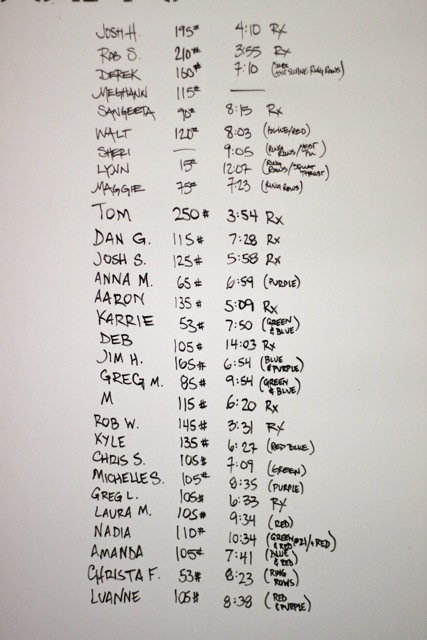 JOSH H. 195# 4:10 Rx
ROB S. 210# 3:55 Rx
DEREK 160# 7:10 (RING ROWS)
MEGHANN 115# —
SANGEETA 90# 8:15 Rx
WALT 120# 8:03 (BLUE/RED)
SHERI — 9:05 (RING ROWS/
LYNN 15# 12:07 (RING ROWS/SQUAT THRUST)
MAGGIE 75# 7:23 (RING ROWS)
TOM 250# 3:54 Rx
DAN G. 115# 7:28 Rx
JOSH S. 125# 5:58 Rx
ANNA M. 65# 6:59 (PURPLE)
AARON 135# 5:09 Rx
KARRIE 53# 7:50 (GREEN & BLUE)
DEB 105# 14:03 Rx
JIM H. 165# 6:54 (BLUE & PURPLE)
GREG M. 85# 9:54 (GREEN & BLUE)
M 115# 6:20 Rx
ROB W. 145# 3:31 Rx
KYLE 135# 6:27 (RED BLUE)
CHRIS S. 105# 7:09 (GREEN)
MICHELLE S. 105# 8:35 (PURPLE)
GREG L. 105# 6:33 Rx
LAURA M. 105# 9:34 (RED)
NADIA 110# 10:34 (GREEN & RED @21/+RED)
AMANDA 105# 7:41 (BLUE & RED)
CHRISTA F. 53# 8:23 (RING ROWS)
LUANNE 105# 8:38 (RED & PURPLE)